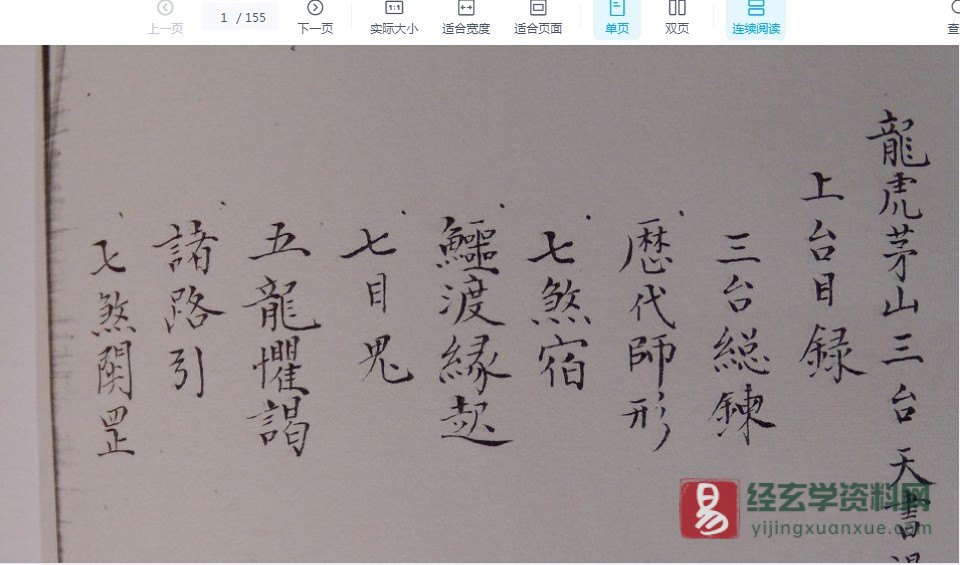 上一页
1 / 155
下一页
实际大小
适合宽度
适合页面
单页
双页
连续阅读
查
龍虎茅山三台天書
上台目録
三台総鍊
歷代師形
七煞宿
鱷渡縁起
七目鬼
五龍懼謁
諸路引
七煞関罡
易
经玄学资料网
yijingxuanxue.com